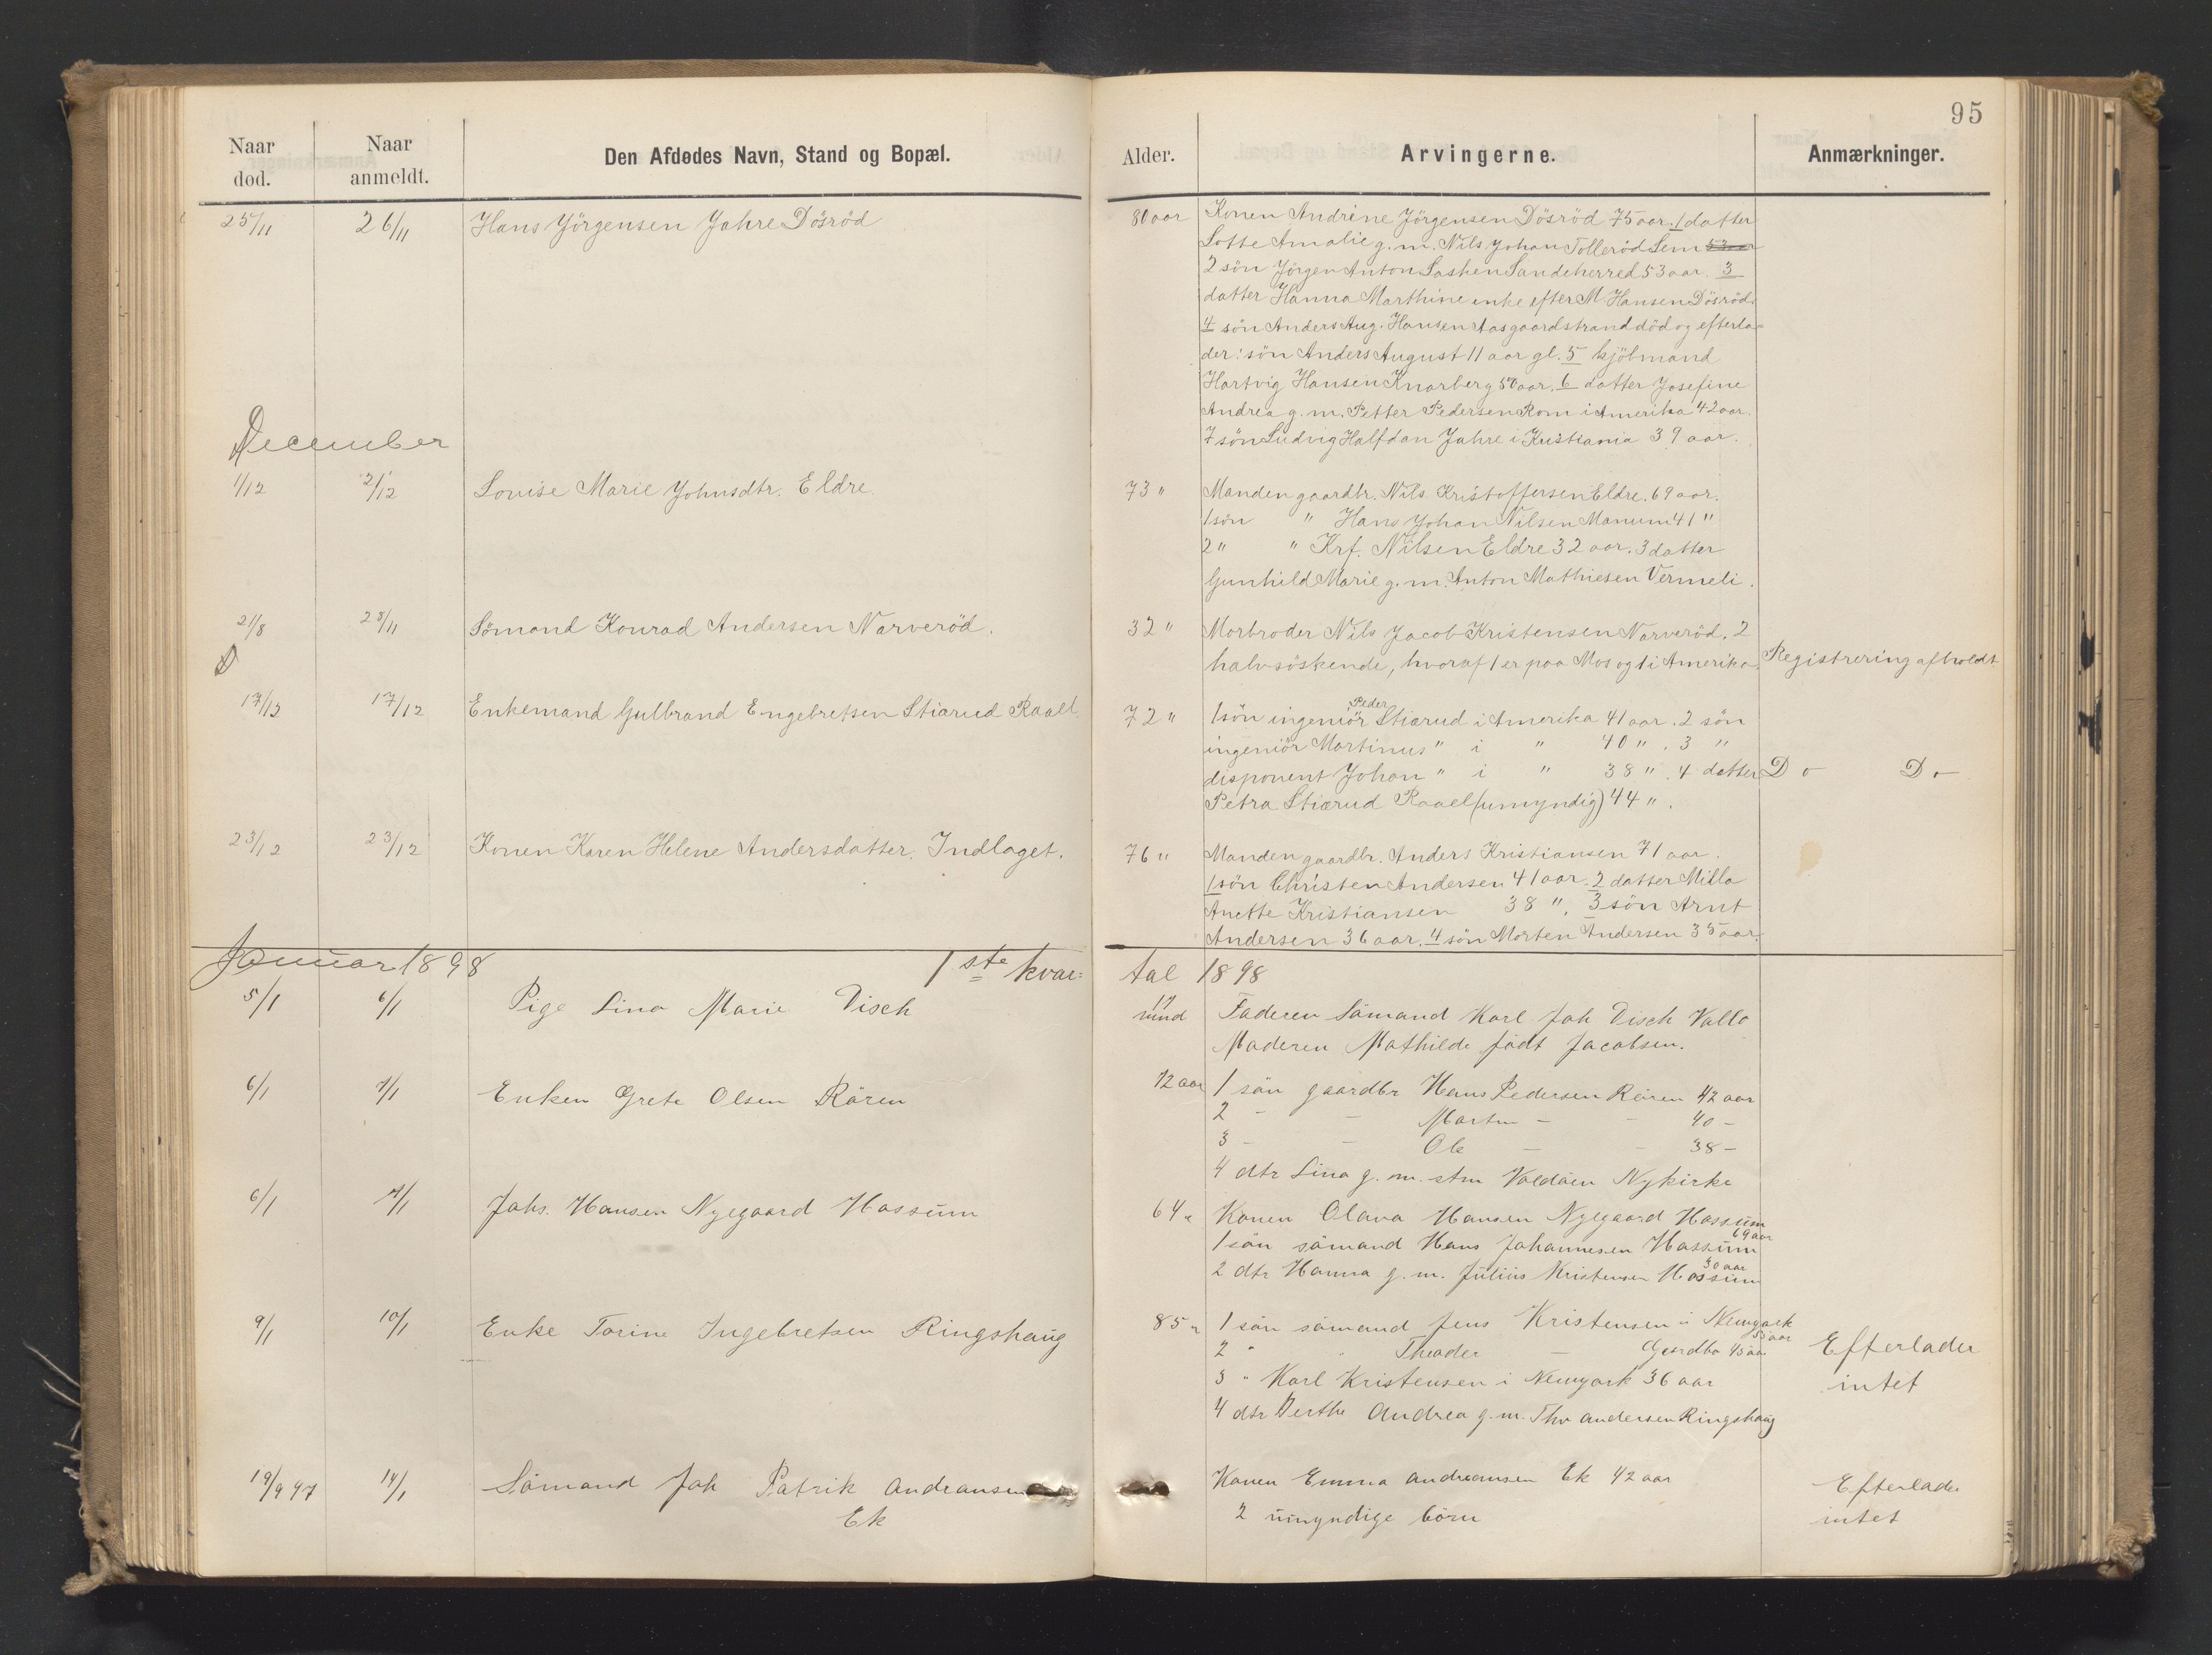 95
Naar død.
Naar anmeldt.
Den Afdødes Navn, Stand og Bopæl.
Alder.
Arvingerne.
Anmærkninger.
25/11 26/11 Hans Jörgensen Jahre Dösröd 80 aar Konen Andrine Jörgensen Dösröd 75 aar. 1 datter
Lotte Amalie g. m. Nils Johan Tolleröd Sem
2 sön Jörgen Anton Sandeherred 53 aar. 3
datter Hanna Marthine enke efter M. Hansen Dösröd.
4 sön Anders Aug. Hansen Aasgaardstrand död og efterla-
der: sön Anders August 11 aar gl. 5 kjöbmand
Hartvig Hansen Knarberg 50 aar. 6 datter Josefine
Andrea g. m. Petter Pedersen Rom i Amerika 42 aar.
7 sön Ludvig Halfdan Jahre i Kristiania 39 aar.
December
1/12 2/12 Louise Marie Johnsdtr. Eldre. 73 " Manden gaardbr. Nils Kristoffersen Eldre. 69 aar.
1 sön " Hans Johan Nilsen Manum 41 "
2 " " Krf. Nilsen Eldre 32 aar. 3 datter
Gunhild Marie g. m. Anton Mathiesen Vermeli.
21/8 28/11 Sömand Konrad Andersen Narveröd. 32 " Morbroder Nils Jacob Kristensen Narveröd. 2
D
halvsöskende, hvoraf 1 er paa Mos og 1 i Amerika. Registrering afholdt
17/12 17/12 Enkemand Gulbrand Engebretsen Stiarud Raael. 72 " 1 sön ingeniör Peder Stiarud i Amerika 41 aar. 2 sön
ingeniör Martinus " i " 40 ". 3 "
disponent Johan " i " 38 ". 4 datter Do Do
Petra Stiarud Raael (umyndig) 44 ".
23/12 23/12 Konen Karen Helene Andersdatter. Indlaget. 76 " Manden gaardbr. Anders Kristiansen 71 aar.
1 sön Christen Andersen 41 aar. 2 datter Milla
Anette Kristiansen 38 ". 3 sön Arnt
Andersen 36 aar. 4 sön Morten Andersen 35 aar.
Januar 1898 1ste kvar= tal 1898
5/1 6/1 Pige Lina Marie Disch mnd Faderen Sömand Karl Joh Disch Vallö
Moderen Mathilde födt Jacobsen.
6/1 7/1 Enken Grete Olsen Rören 72 aar 1 sön gaardbr Hans Pedersen Rören 42 aar
2 - - Martin - - 40 -
3 - - Ole - - 38 -
4 dtr Lina g. m. stm Valdöen Nykirke
6/1 7/1 Johs. Hansen Nygaard Hassum 64 " Konen Olava Hansen Nygaard Hassum 69 aar
1 sön sömand Hans Johannesen Hassum 30 aar
2 dtr Hanna g. m. Julius Kristensen Hassum
9/1 10/1 Enke Torine Ingebretsen Ringshaug 85 " 1 sön sömand Jens Kristensen i Newyork 55 aar
2 " " Theodor - 45 aar Efterlader
3 " Karl Kristensen i Newyork 36 aar intet
4 dtr Berthe Andrea g. m. Thv Andersen Ringshaug
19/9 97 14/1 Sömand Joh Patrik Andreansen Konen Emma Andreansen Ek 42 aar Efterlader
Ek 2 umyndige börn intet